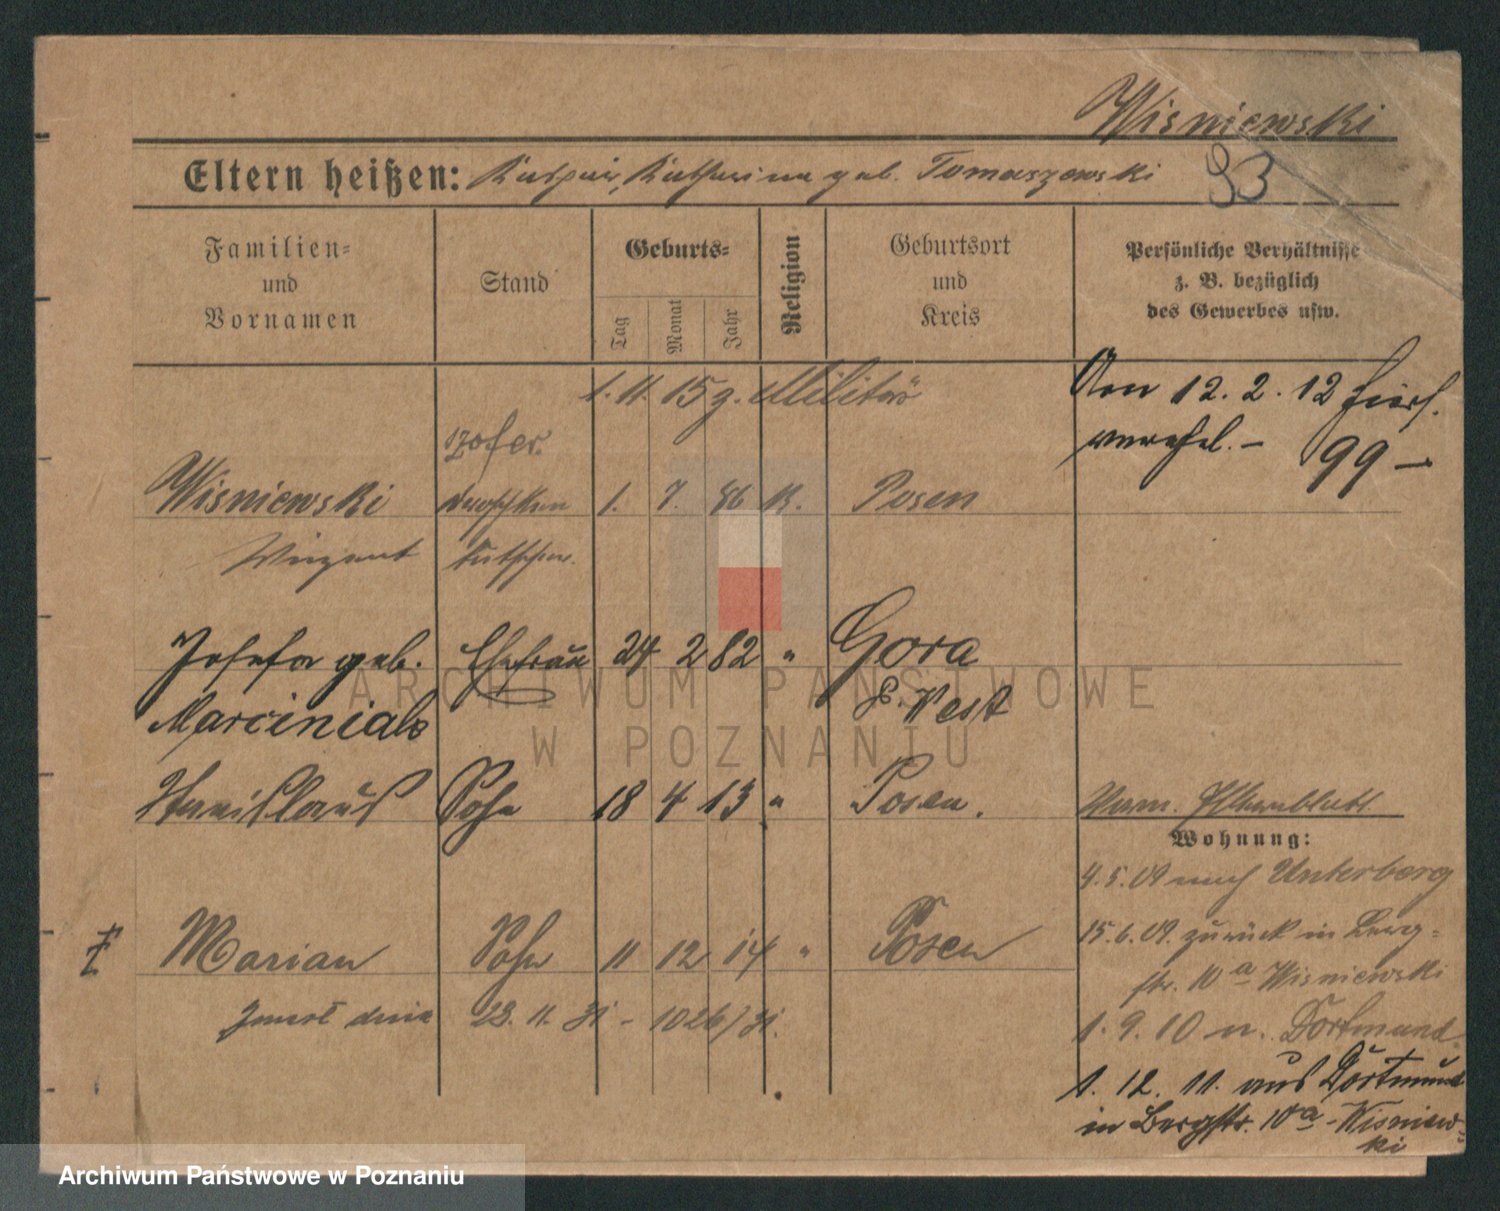 Wisniewski
Eltern heißen: Kaspar, Katharina geb. Tomaszewski
93
Familien-
und
Vornamen
Stand
Geburts-
Tag
Monat
Jahr
Religion
Geburtsort
und
Kreis
Persönliche Verhältnisse
z. B. bezüglich
des Gewerbes usw.
1. 11. 15 z. Militär
Am 12. 2. 12 hier
verehel. – 99 –
szofer.
Wisniewski Droschken 1. 7. 86 k. Posen
Vinzent kutscher.
Josefa geb. Ehefrau 24 2 82 " Gora
Marciniak
Stanislaus Sohn 18 4 13 " Posen.
Wohnung:
4.5.09 nach Unterberg
Marian Sohn 11 12 14 " Posen
15.6.09. zurück in Berg-
str. 10a Wisniewski
Zmarł dnia 23. 11. 31 – 1026/31.
1. 9. 10 n. Dortmund.
1. 12. 11. aus Dortmund
in Bergstr. 10a - Wisniew-
ki
ARCHIWUM PAŃSTWOWE
W POZNANIU
Archiwum Państwowe w Poznaniu